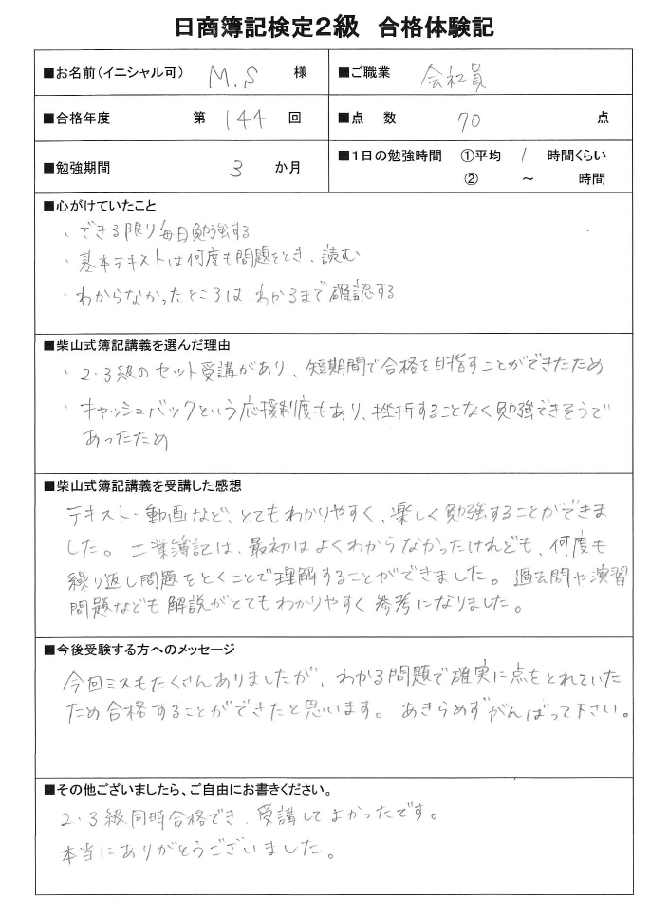 日商簿記検定2級 合格体験記
■お名前(イニシャル可) M.S 様 ■ご職業 会社員
■合格年度 第 144 回 ■点 数 70 点
■勉強期間 3 か月 ■1日の勉強時間 ①平均 1 時間くらい
② ～ 時間
■心がけていたこと
・できる限り毎日勉強する
・基本テキストは何度も問題をとき、読む
・わからなかったところは わかるまで確認する
■柴山式簿記講義を選んだ理由
・2・3級のセット受講があり、短期間で合格を目指すことができたため
・キャッシュバックという応援制度もあり、挫折することなく勉強できそうで
あったため
■柴山式簿記講義を受講した感想
テキスト・動画など、とてもわかりやすく、楽しく勉強することができま
した。工業簿記は、最初はよくわからなかったけれども、何度も
繰り返し問題をとくことで理解することができました。過去問や演習
問題なども解説がとてもわかりやすく参考になりました。
■今後受験する方へのメッセージ
今回ミスもたくさんありましたが、わかる問題で確実に点をとれていた
ため合格することができたと思います。あきらめずがんばって下さい。
■その他ございましたら、ご自由にお書きください。
2・3級同時合格でき、受講してよかったです。
本当にありがとうございました。